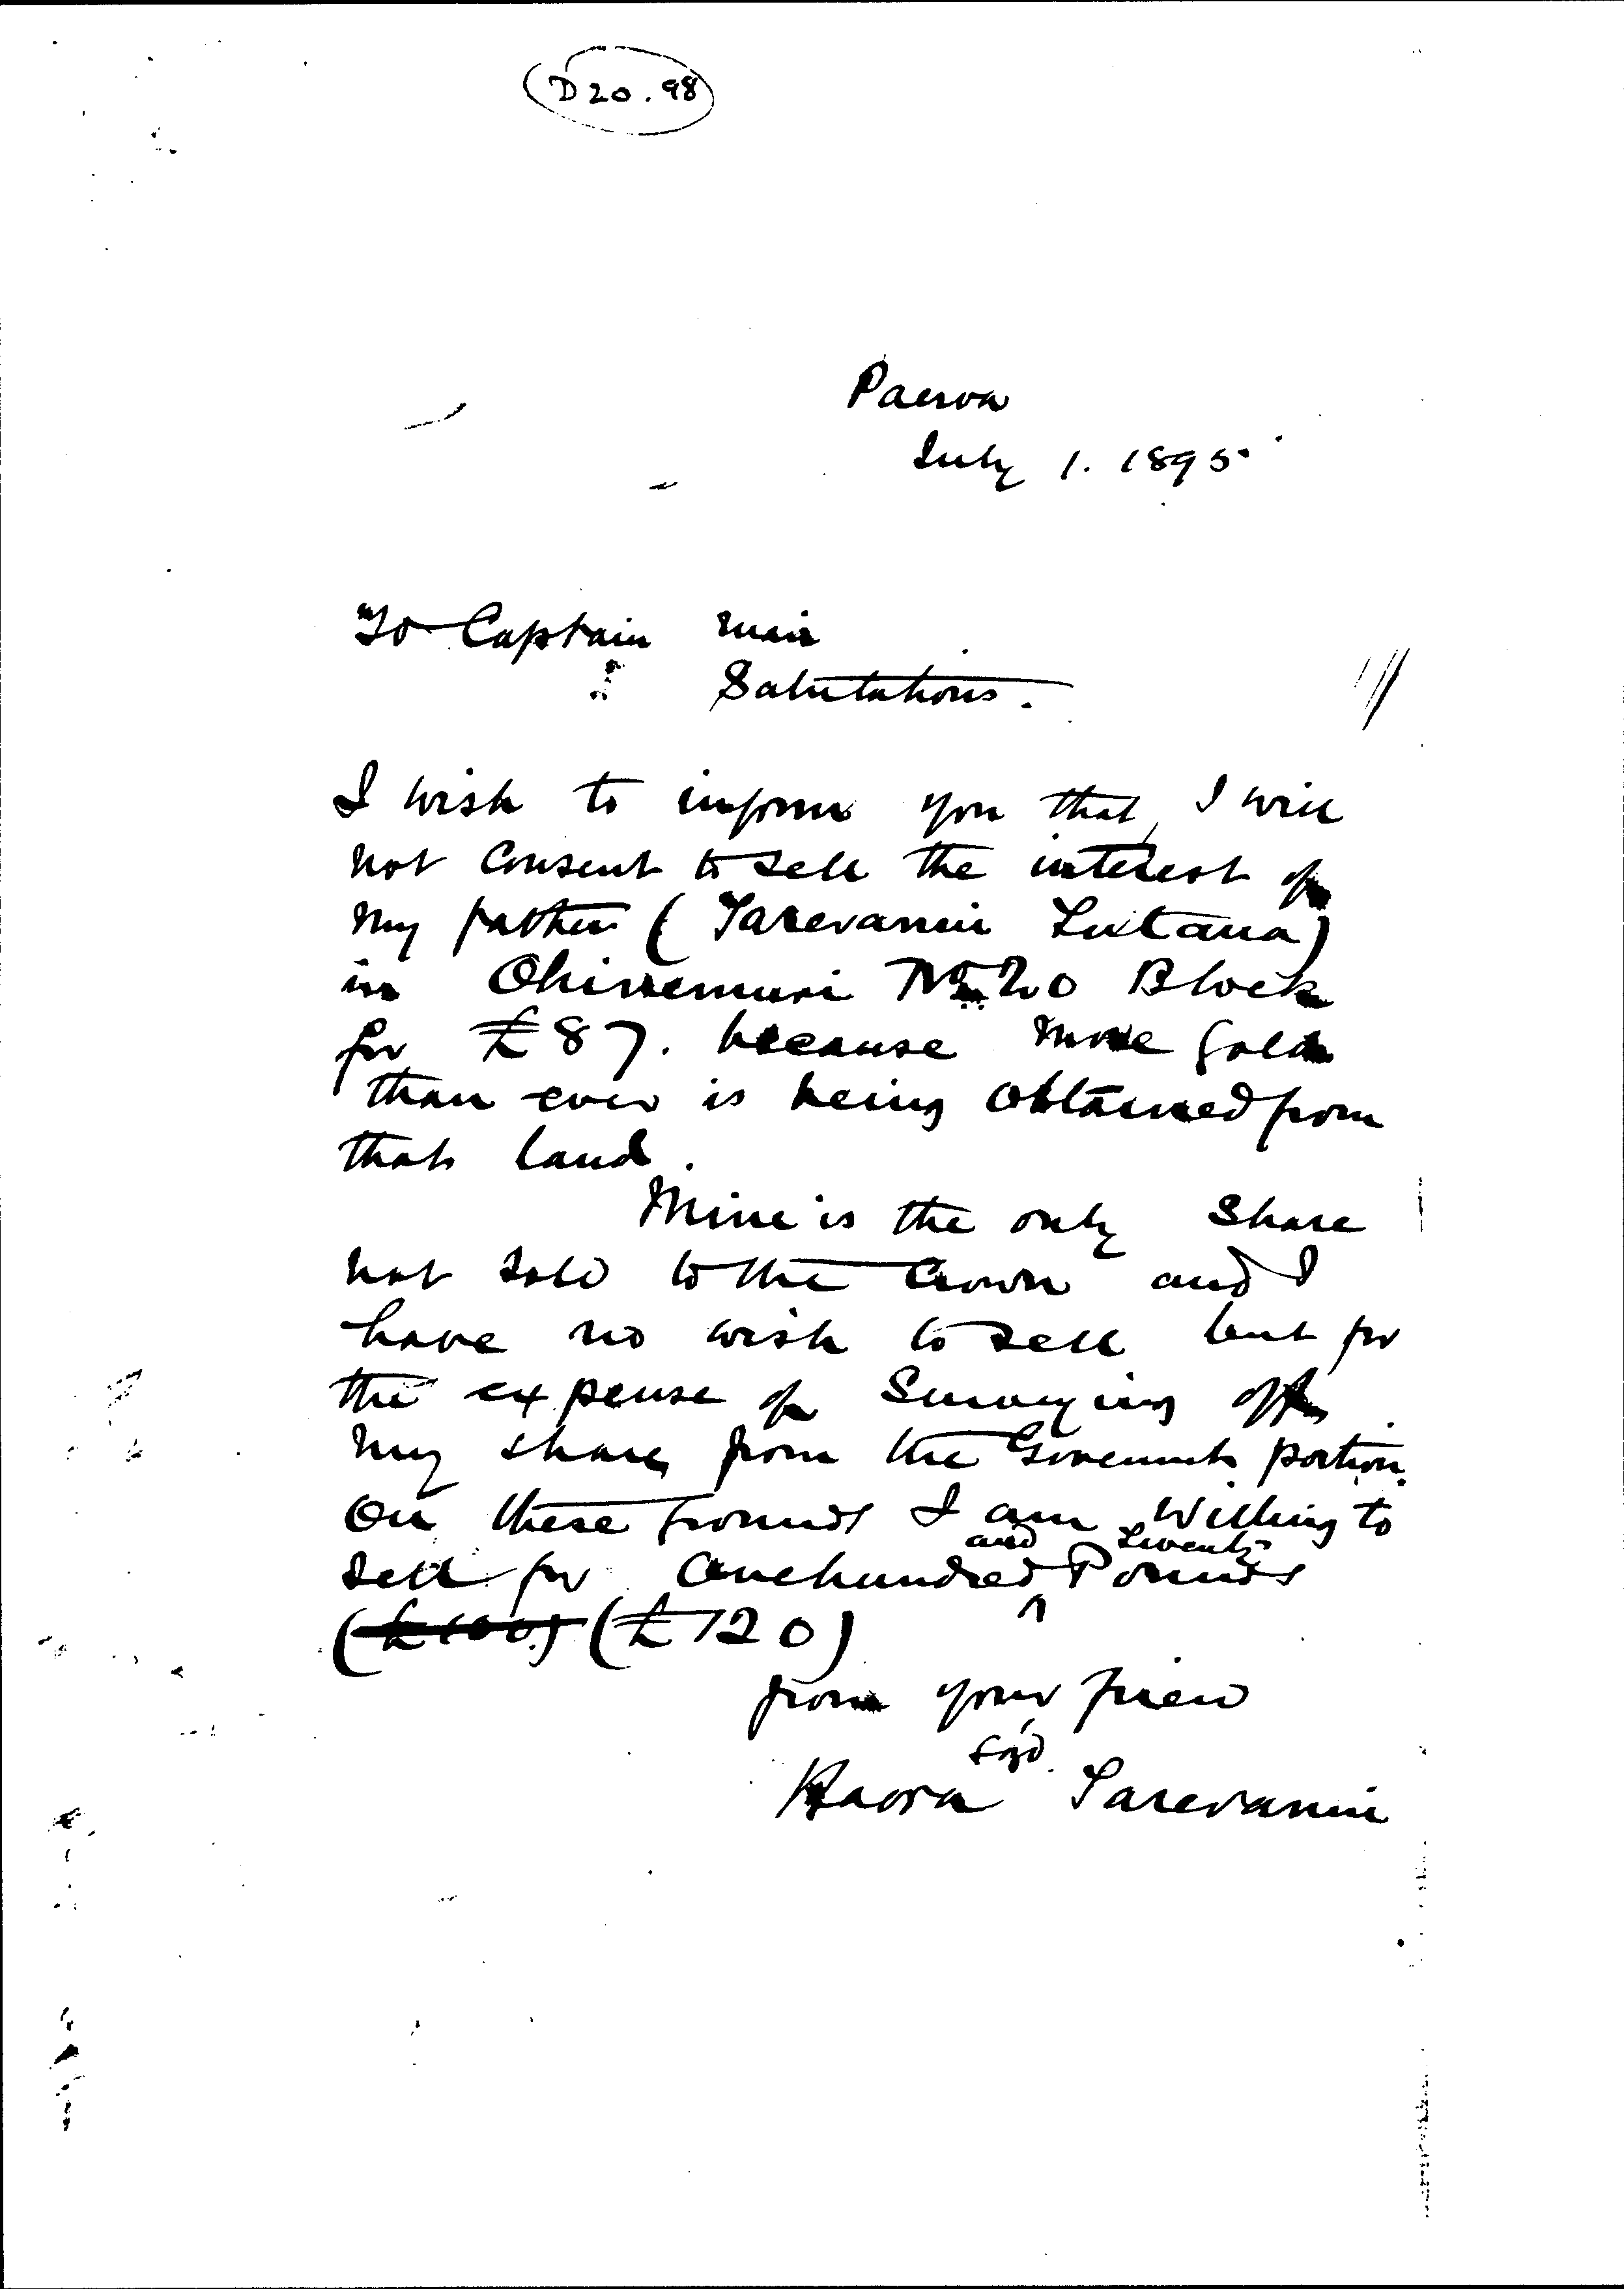 D20.98
Paeroa
July 1. 1895
To Captain Mair
Salutations.
I wish to inform you that, I will
not consent to sell the interest of
my father (Tarevanui Lutana)
in Ohinemuri No 20 Block
for £87. because more gold
than ever is being obtained from
that land.
Mine is the only share
not sold to the Crown and I
have no wish to sell but for
the expense of surveying off
my share from the Goverments portion.
On these grounds I am Willing to
sell for One hundred and Twenty Pounds
(£100) (£120)
from your friend
sgd.
Haora Tarevanui